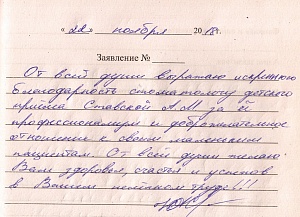 «22» ноября 2018г.
Заявление №
От всей души выражаю искреннюю
благодарность стоматологу детского
приёма Ставской А.М за её
профессионализм и доброжелательное
отношение к своим маленьким
пациентам. От всей души желаю
Вам здоровья, счастья и успехов
в Вашем нелёгком труде!!!